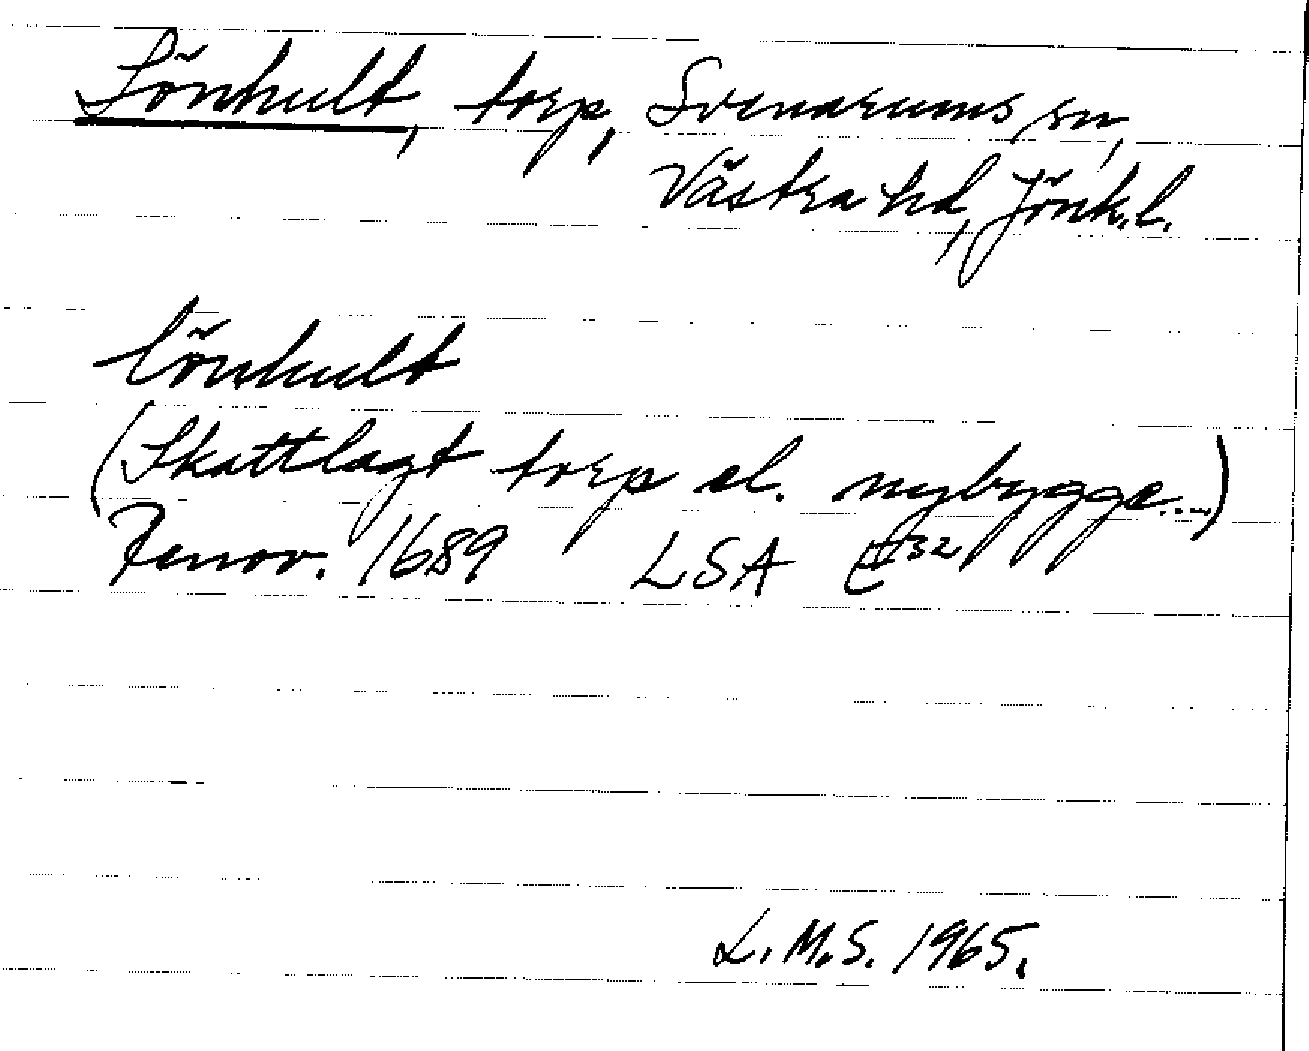 Lönhult, torp, Svenarums sn,
Västra hd, Jönk.l.
lönhult
(Skattlagt torp el. nybygge....)
Renov. 1689 LSA E32
L.M.S. 1965.